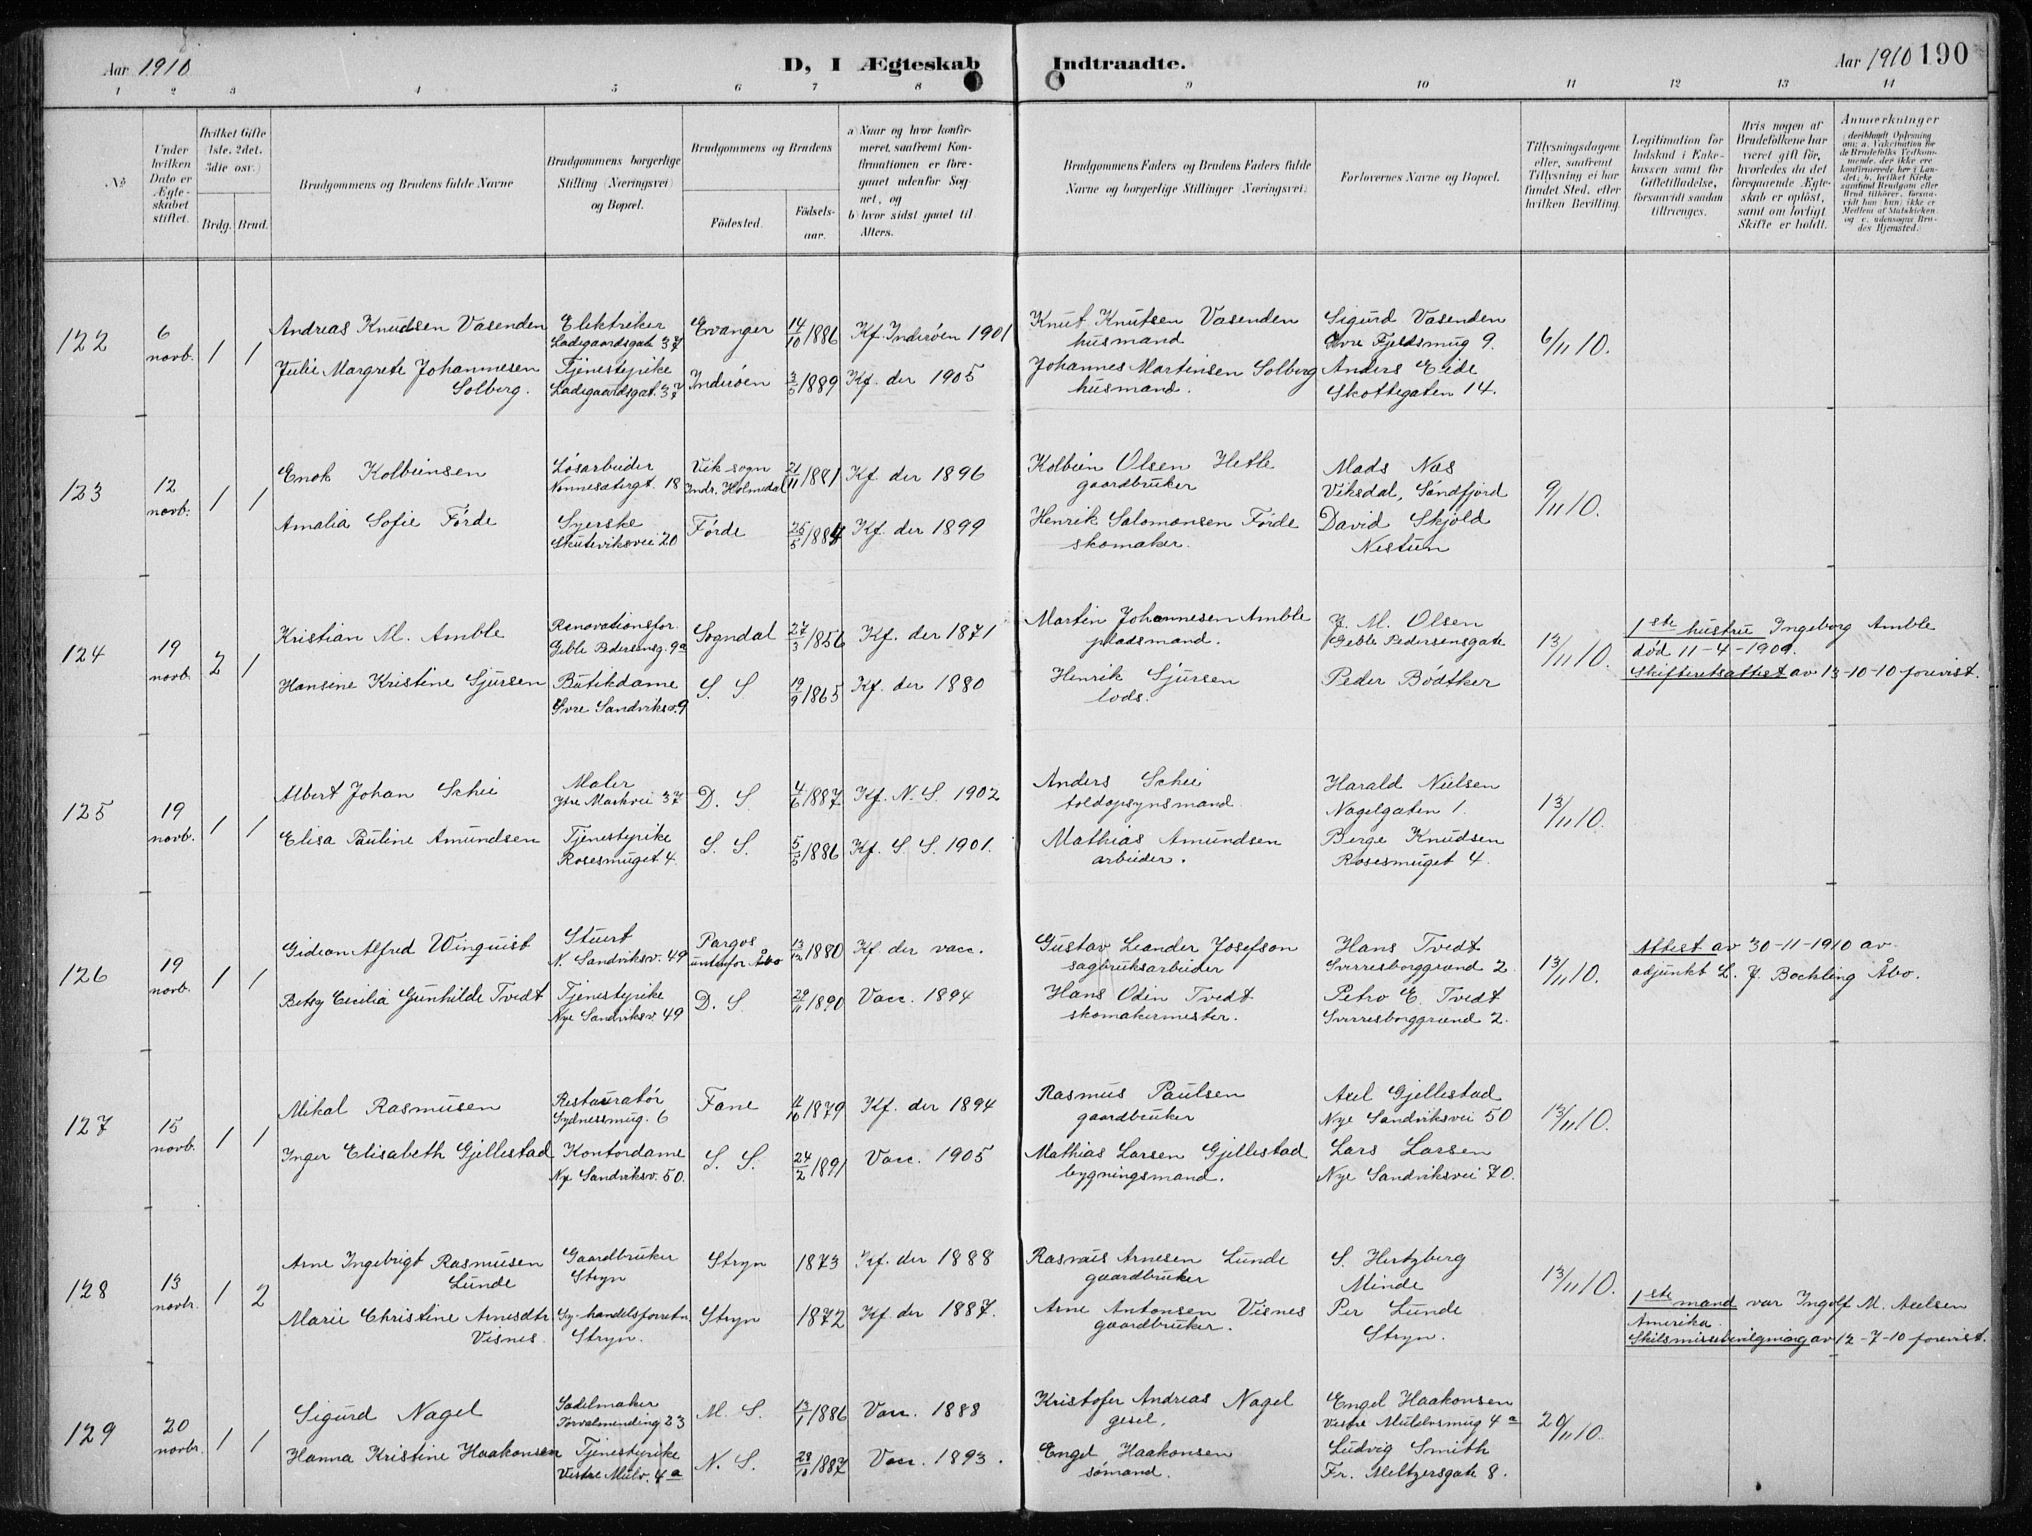 Aar 1910
D, I Ægteskab Indtraadte.
Aar 1910 190
1 2 3 4 5 6 7 8 9 10 11 12 13 14
No
Under hvilken Dato er Ægteskabet stiftet.
Hvilket Gifte (1ste. 2det. 3die osv.)
Brdg. Brud.
Brudgommens og Brudens fulde Navne
Brudgommens borgerlige Stilling (Næringsvei) og Bopæl.
Brudgommens og Brudens
Fødested.
Fødselsaar.
a) Naar og hvor konfirmeret, saafremt Konfirmationen er foregaaet udenfor Sognet, og
b) hvor sidst gaaet til Alters.
Brudgommens Faders og Brudens Faders fulde Navne og borgerlige Stillinger (Næringsvei).
Forlovernes Navne og Bopæl.
Tillysningsdagene eller, saafremt Tillysning ei har fundet Sted, efter hvilken Bevilling.
Legitimation for Indskud i Enkekassen samt for Giftetilladelse, forsaavidt saadan tiltrænges.
Hvis nogen af Brudefolkene har været gift før, hvorledes da det foregaaende Ægteskab er opløst, samt om lovligt Skifte er holdt.
Anmerkninger
122
6 novb.
1 1
Andreas Knudsen Vasenden
Elektriker
Ladegaardsgate 37
Evanger
14/10 1886
Kf. Inderøen 1901
Knut Knutsen Vasenden
husmand
Sigurd Vasenden
Øvre Fjeldsmug 9.
6/11 10.
Julie Margrete Johannesen Solberg.
Tjenestepike
Ladegaardsgat. 37
Inderøen
3/5 1889
Kf. der 1905
Johannes Martinsen Solberg
husmand.
Anders Eide
Skottegaten 14.
123
12 novb.
1 1
Enok Kolbeinsen
Løsarbeider
Nonnesatergt. 18
Vik sogn
Indr. Holmedal
21/11 1881
Kf. der 1896
Kolbein Olsen Hetle
gaardbruker
Mads Næs
Viksdal, Søndfjord
9/11 10.
Amalia Sofie Førde
Syerske
Skuteviksvei 20
Førde
25/5 1884
Kf. der 1899
Henrik Salomonsen Førde
skomaker.
David Skjold
Nestun
124
19 novb.
2 1
Kristian M. Amble
Renovationsfor.
Geble Pedersensg. 9a
Sogndal
27/3 1856
Kf. der 1871
Martin Johannesen Amble
pladsmand.
J. M. Olsen
Geble Pedersensgate
13/11 10.
1ste hustru Ingeborg Amble
død 11-4-1909.
Skifteretsattest av 13-10-10 forevist.
Hansine Kristine Sjursen
Butikdame
Øvre Sandviksv. 9
S. S.
19/9 1865
Kf. der 1880
Henrik Sjursen
lods.
Peder Bødtker
125
19 novb.
1 1
Albert Johan Schei
Maler
Ytre Markvei 37
D. S.
4/6 1887
Kf. N. S. 1902
Anders Schei
toldopsynsmand.
Harald Nielsen
Nagelgaten 1.
13/11 10.
Elisa Pauline Amundsen
Tjenestepike
Rosesmuget 4.
S. S.
5/5 1886
Kf. S. S. 1901.
Mathias Amundsen
arbeider.
Berge Knudsen
Rosesmuget 4.
126
19 novb.
1 1
Gideon Alfred Winquist
Stuert
N. Sandviksv. 49
Pargos
utenfor Åbo
13/12 1880
Kf. der vacc.
Gustav Leander Josefson
sagbruksarbeider
Hans Tvedt
Sverresborggrænd 2.
13/11 10.
Attest av 30-11-1910 av
adjunkt L. J. Bochling Åbo.
Betsy Cecilia Gunhilde Tvedt
Tjenestepike
Nye Sandviksv. 49
D. S.
29/11 1890
Vacc. 1894
Hans Odin Tvedt
skomakermester.
Petro E. Tvedt
Sverresborggrænd 2.
127
15 novb.
1 1
Mikal Rasmusen
Restauratør
Sydnessmug. 6
Fane
4/10 1879
Kf. der 1894
Rasmus Paulsen
gaardbruker
Axel Gjellestad
Nye Sandviksvei 50
13/11 10.
Inger Elisabeth Gjellestad
Kontordame
Nye Sandviksv. 50.
S. S.
24/2 1891
Vacc. 1905
Mathias Larsen Gjellestad
bygningsmand.
Lars Larsen
Nye Sandviksvei 70.
128
13 novbr.
1 2
Arne Ingebrigt Rasmusen Lunde
Gaardbruker
Stryn
Stryn
1873
Kf. der 1888
Rasmus Arnesen Lunde
gaardbruker
S. Hertzberg
Minde
13/11 10.
Marie Christine Arnesdtr Visnes.
Sy-handelsforretn.
Stryn.
Stryn
1872
Kf. der 1887.
Arne Antonsen Visnes
gaardbruker.
Per Lunde
Stryn.
1ste mand var Ingolf M. Axelsen
Amerika.
Skilsmissebevilgning av 12-7-10 forevist.
129
20 novbr.
1 1
Sigurd Nagel
Sadelmaker
Torvalmending 23
M. S.
13/1 1886
Vacc. 1888
Kristofer Andreas Nagel
gesel.
Engel Haakonsen
Vestre Muldvsmug 4a
20/11 10.
Hanna Kristine Haakonsen
Tjenestepike
Vestre Mulv. 4a
N. S.
28/10 1887
Vacc. 1893.
Engel Haakonsen
sømand.
Ludvig Smith
Fr. Meltzersgate 8.